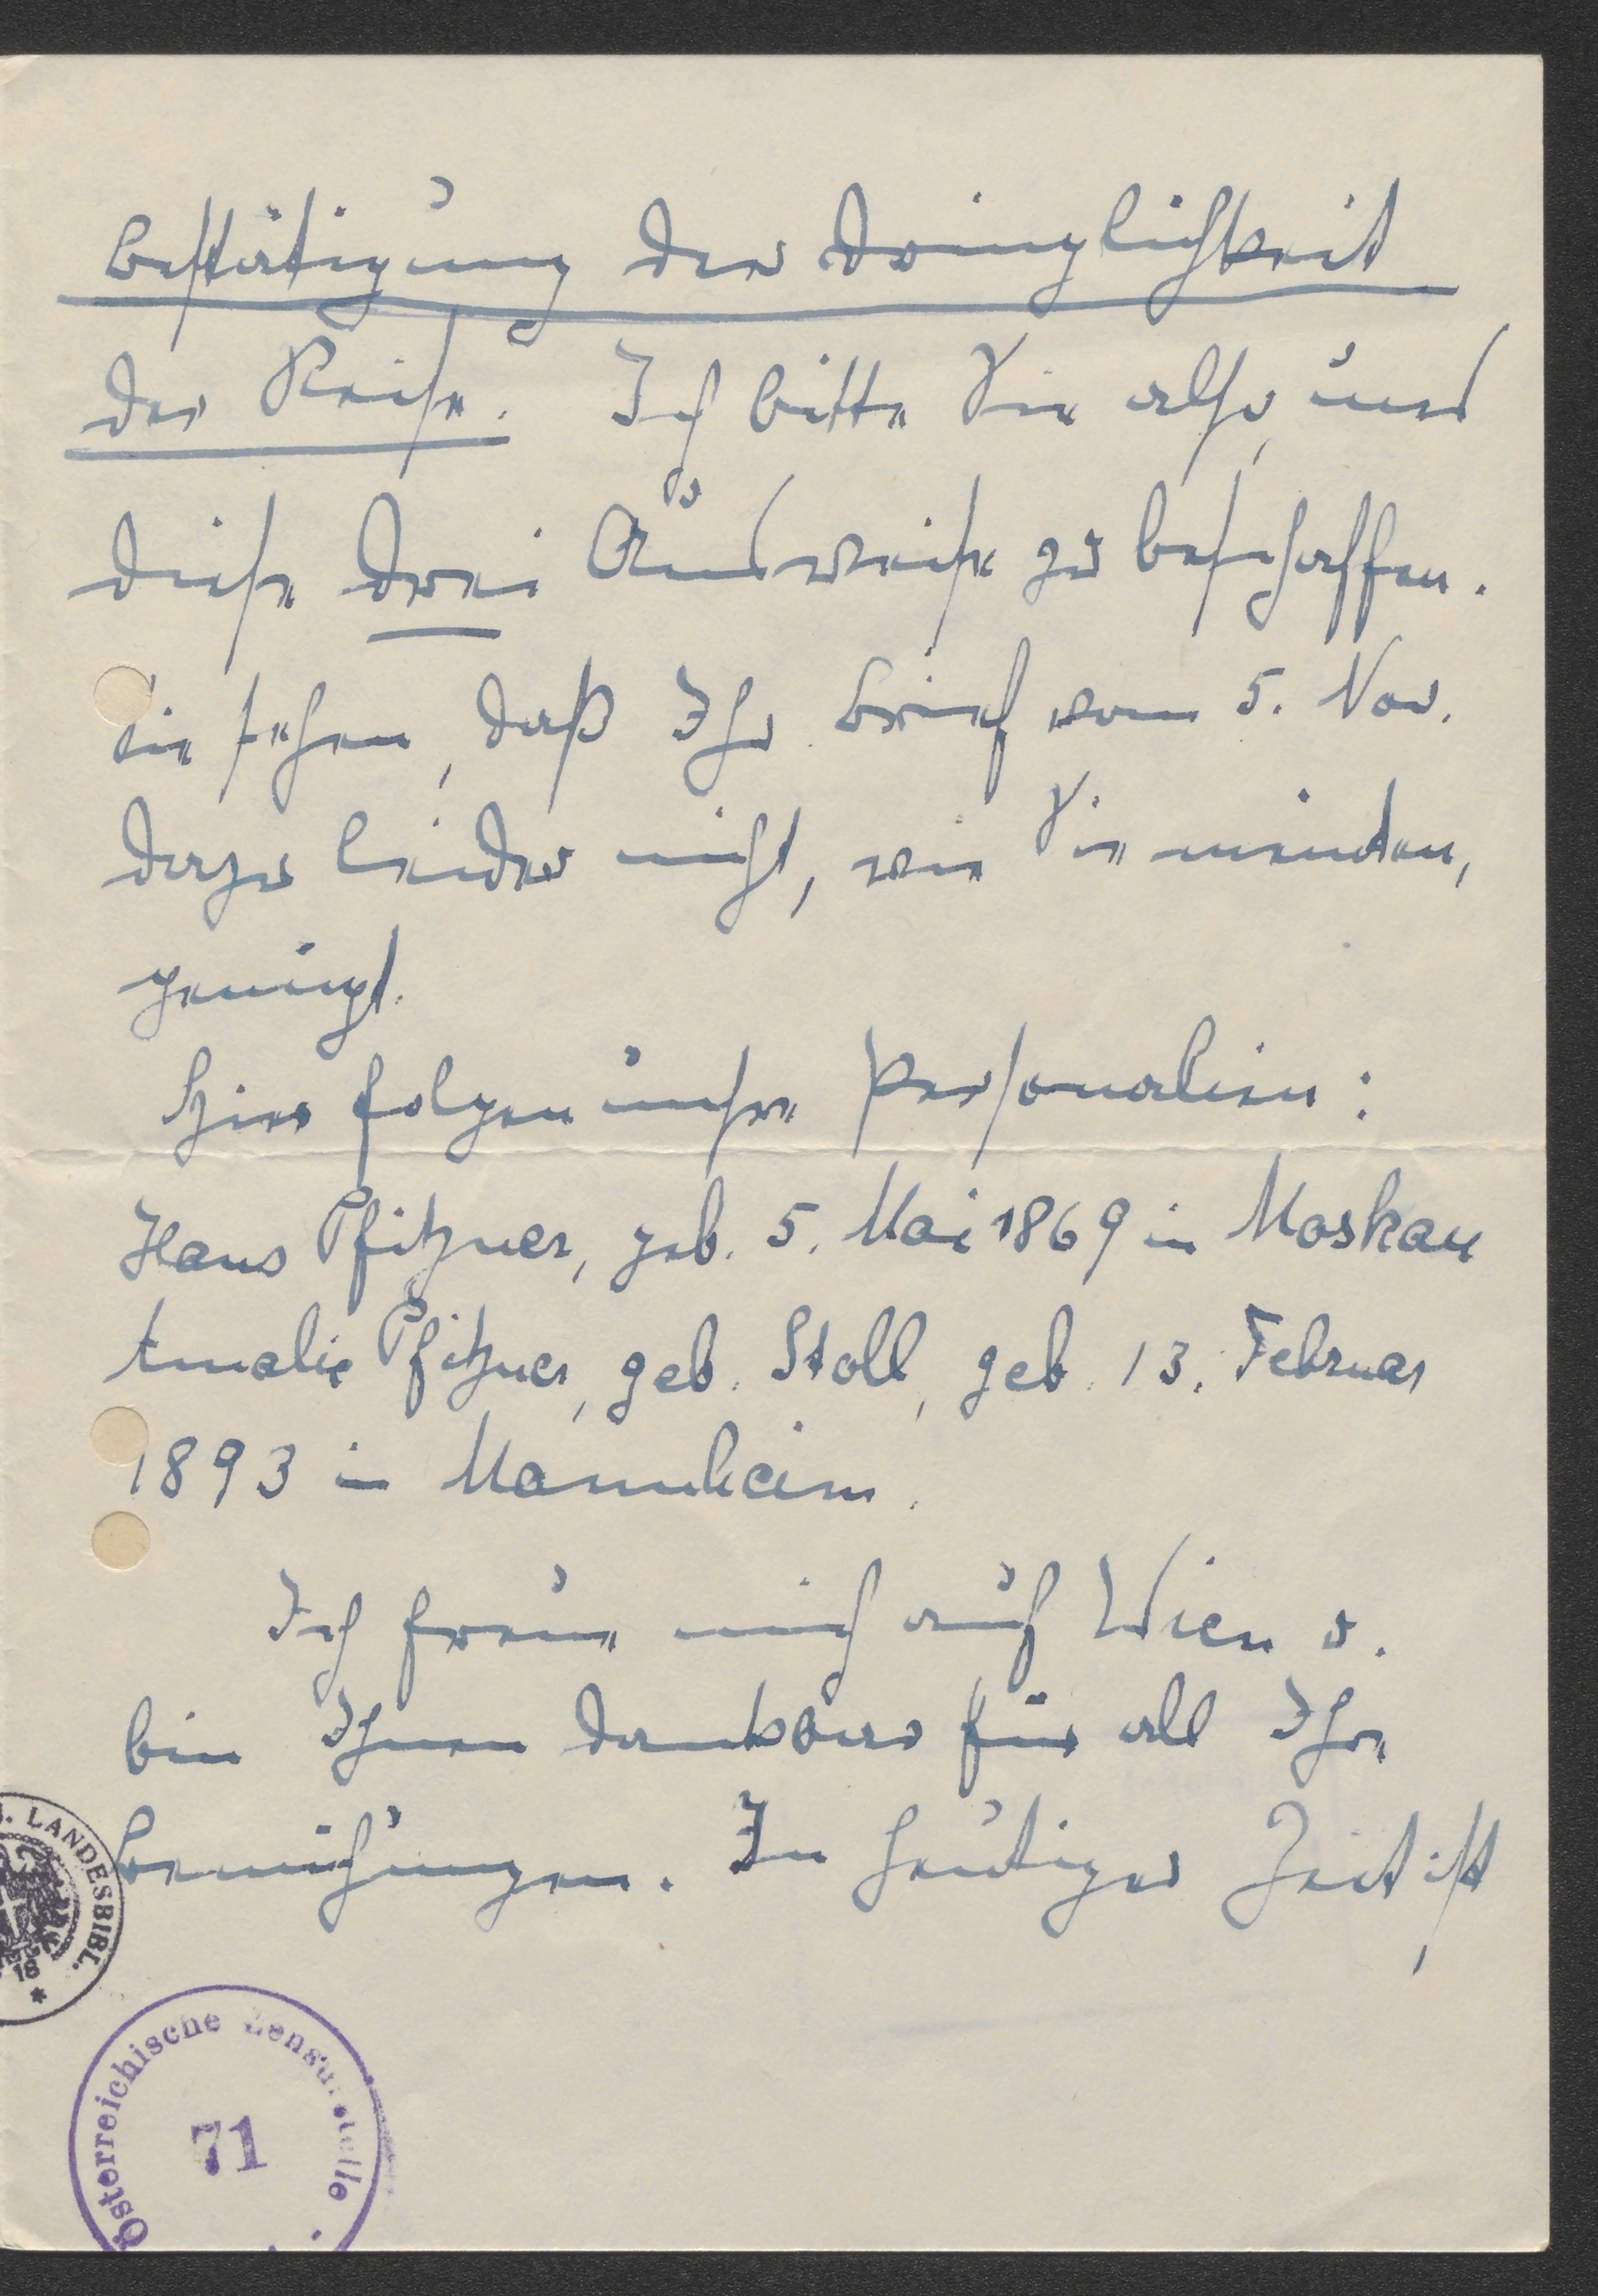 Bestätigung der Dringlichkeit
der Reise. Ich bitte Sie also, uns
diese drei Ausweise zu beschaffen.
Sie sehen, daß Ihr Brief vom 5. Nov.
dazu leider nicht, wie Sie meinten,
genügt.
Hier folgen unsre Personalien:
Hans Pfitzner, geb. 5. Mai 1869 in Moskau
Amalie Pfitzner, geb. Stoll, geb. 13. Februar
1893 in Mannheim.
Ich freue mich auf Wien u.
bin Ihnen dankbar für all Ihre
Bemühungen. In heutiger Zeit ist
LANDESBIBL.
18
Österreichische Zensurstelle
71